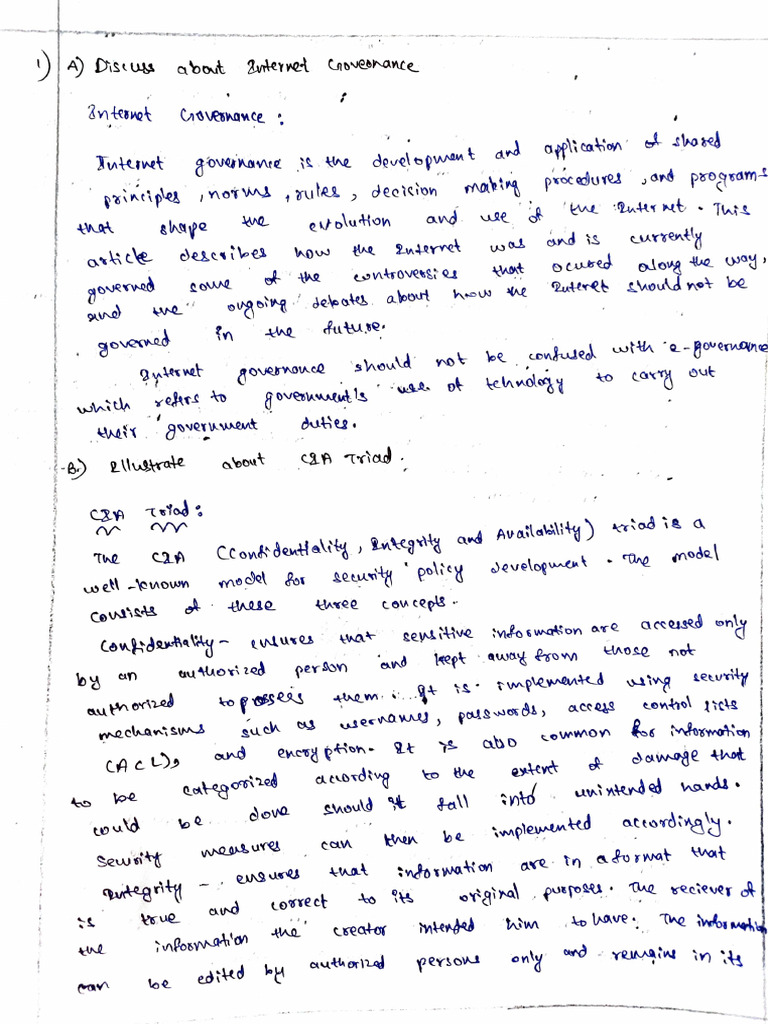 1) A) Discuss about Internet Governance
Internet Governance :
Internet governance is the development and application of shared
principles, norms, rules, decision making procedures, and programs
that shape the evolution and use of the Internet. This
article describes how the Internet was and is currently
governed some of the controversies that ocured along the way,
and the ongoing debates about how the Interet should not be
governed in the future.
Internet governance should not be confused with e-governance
which refers to government's use of technology to carry out
their government duties.
B.) Illustrate about CIA Triad.
CIA Triad :
The CIA (Confidentiality, Integrity and Availability) triad is a
well-known model for security policy development. The model
consists of these three concepts.
Confidentiality - ensures that sensitive information are accessed only
by an authorized person and kept away from those not
authorized to possess them. It is implemented using security
mechanisms such as usernames, passwords, access control lists
(ACL), and encryption. It is also common for information
to be categorized according to the extent of damage that
could be done should it fall into unintended hands.
Security measures can then be implemented accordingly.
Integrity - ensures that information are in a format that
is true and correct to its original purposes. The reciever of
the information the creator intended him to have. The information
can be edited by authorized persons only and remains in its